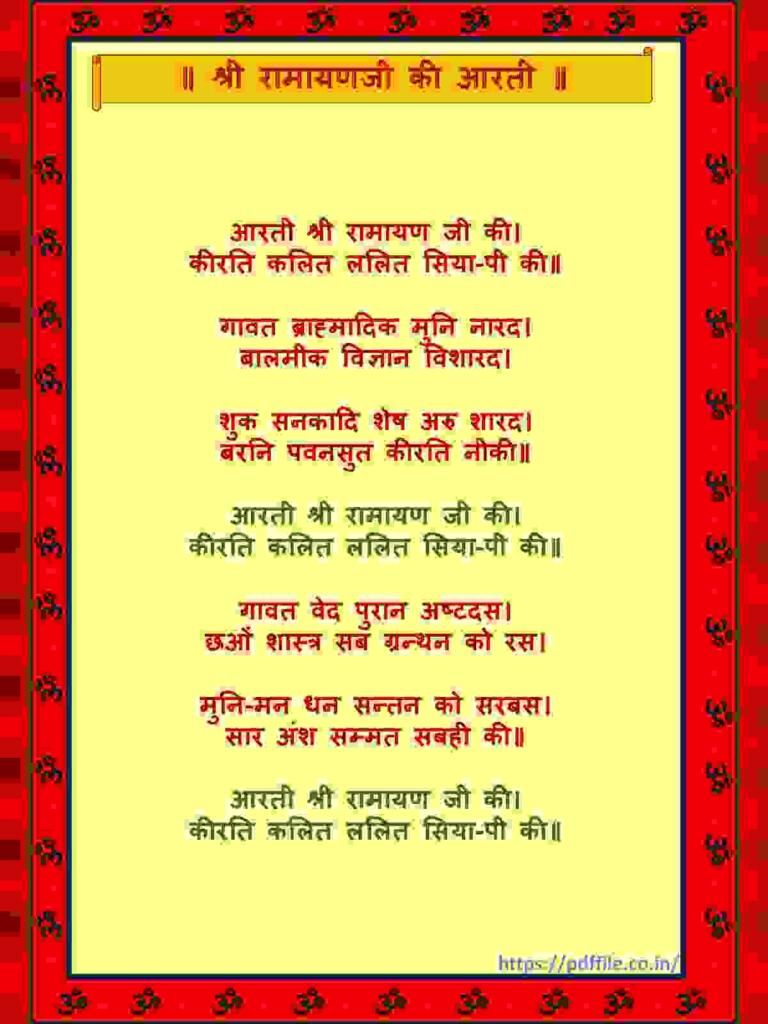 ॥ श्री रामायणजी की आरती ॥
आरती श्री रामायण जी की।
कीरति कलित ललित सिया-पी की॥
गावत ब्राह्मादिक मुनि नारद।
बालमीक विज्ञान विशारद।
शुक सनकादि शेष अरु शारद।
बरनि पवनसुत कीरति नीकी॥
आरती श्री रामायण जी की।
कीरति कलित ललित सिया-पी की॥
गावत वेद पुरान अष्टदस।
छओं शास्त्र सब ग्रन्थन को रस।
मुनि-मन धन सन्तन को सरबस।
सार अंश सम्मत सबही की॥
आरती श्री रामायण जी की।
कीरति कलित ललित सिया-पी की॥
https://pdffile.co.in/